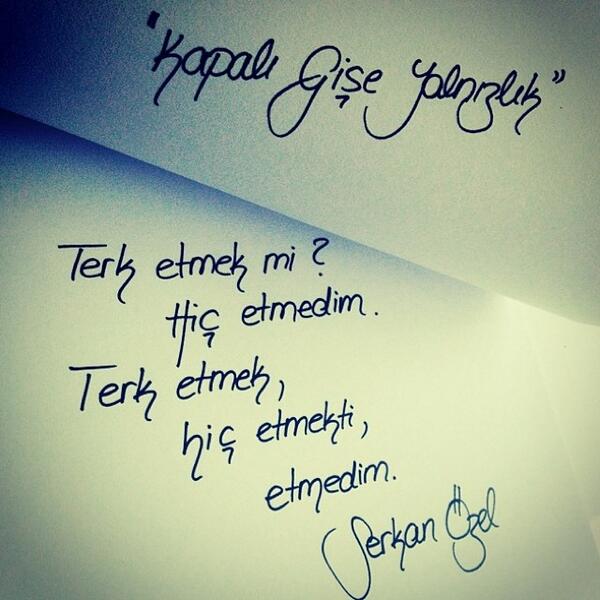 "Kapalı Gişe Yalnızlık"
Terk etmek mi?
Hiç etmedim.
Terk etmek,
hiç etmekti,
etmedim.
Serkan Özel